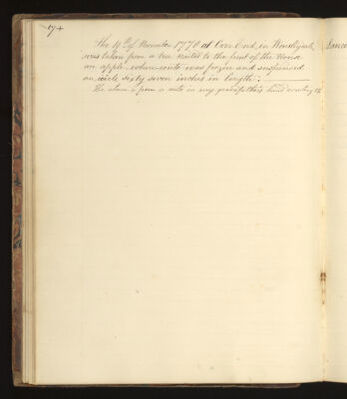 174
The 19th of November 1770 at Carr End, in Wensleydale
was taken from a tree nailed to the front of the House
an apple, whose was frozen and suspended
an icicle sixty seven inches in length
The above is from a note in my grandfather's hand writing
Lanca